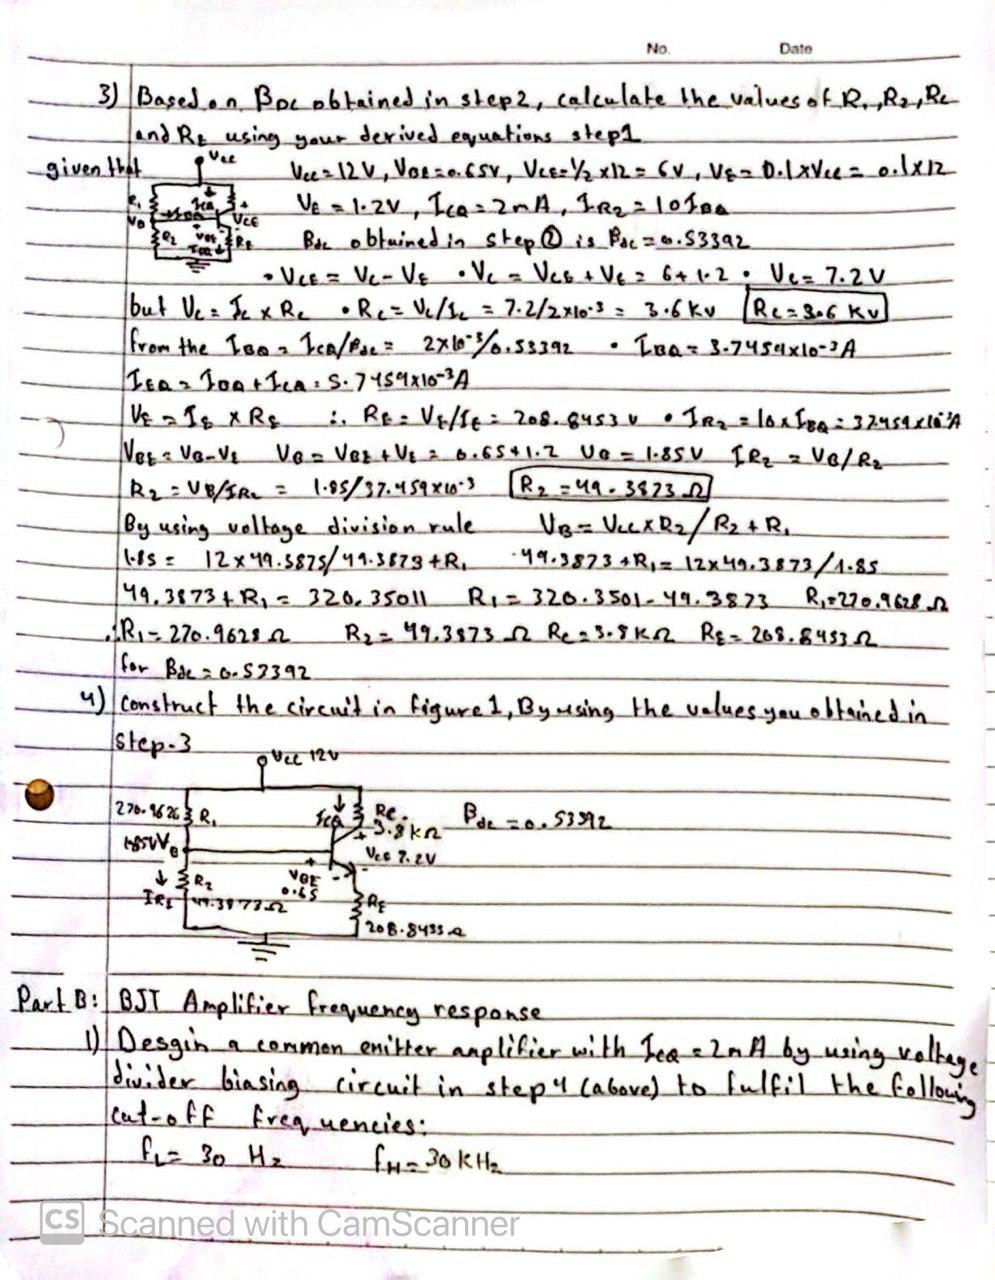 No. Date
3) Based on βDC obtained in step2, calculate the values of R1, R2, RC
and RE using your derived equations step1
given that Vcc Vcc = 12V, VBE = 0.65V, VCE = ½ x12 = 6V, VE = 0.1xVcc = 0.1x12
R1 ICQ + VE = 1.2V, ICQ = 2mA, IR2 = 10IBQ
VB IBQ VCE
R2 VBE RE βdc obtained in step ② is βdc = 0.53392
• VCE = VC - VE • VC = VCE + VE = 6+1.2 • VC = 7.2V
but VC = IC x RC • RC = VC/IC = 7.2/2x10-3 = 3.6 Kv RC = 3.6 Kv
from the IBQ = ICQ/βdc = 2x10-3/0.53392 • IBQ = 3.7459x10-3A
IEQ = IBQ + ICQ = 5.7459x10-3A
VE = IE x RE ∴ RE = VE/IE = 208.8453 v • IR2 = 10 x IBQ = 37.459x10-3A
VBE = VB - VE VB = VBE + VE = 0.65+1.2 VB = 1.85V IR2 = VB/R2
R2 = VB/IR2 = 1.85/37.459x10-3 R2 = 49.3873 Ω
By using voltage division rule VB = Vcc x R2 / R2 + R1
1.85 = 12 x 49.3873/49.3873 + R1 49.3873 + R1 = 12x49.3873/1.85
49.3873 + R1 = 320.35011 R1 = 320.3501 - 49.3873 R1 = 270.9628 Ω
∴ R1 = 270.9628 Ω R2 = 49.3873 Ω RC = 3.8 KΩ RE = 208.8453 Ω
for βdc = 0.53392
4) Construct the circuit in figure 1, By using the values you obtained in
step-3
Vcc 12V
270.9628 R1 ICQ RC βdc = 0.53392
3.8 KΩ
1.85V VB + VCE 7.2V
R2 VBE
IR2 49.3873Ω 0.65 RE
208.8453Ω
Part B: BJT Amplifier frequency response
1) Desgin a common emitter amplifier with ICQ = 2mA by using voltage
divider biasing circuit in step 4 (above) to fulfil the following
cut-off frequencies:
fL = 30 Hz fH = 30 KHz
CS Scanned with CamScanner